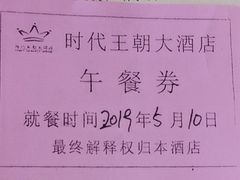 时代王朝大酒店
午餐券
就餐时间2019年5月10日
最终解释权归本酒店